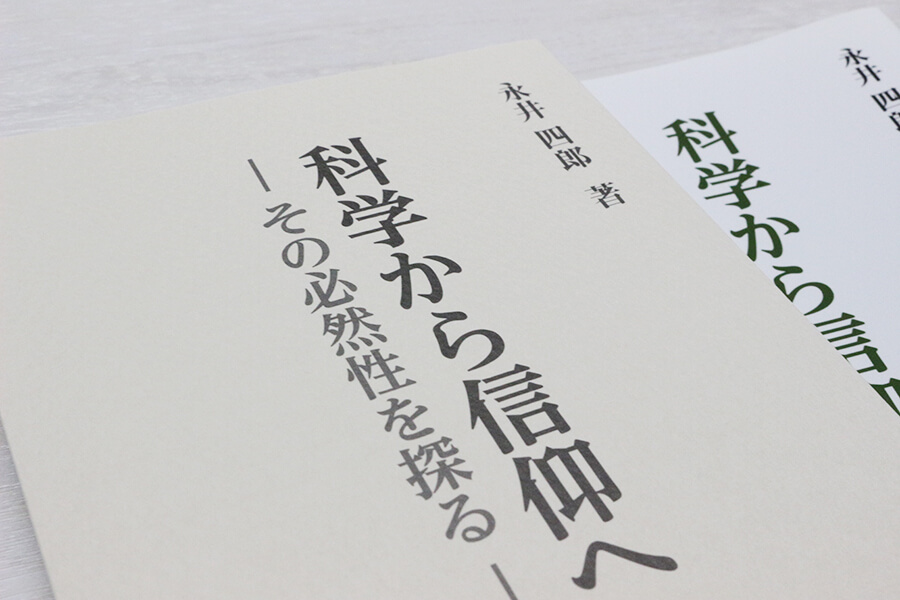 永井 四郎 著
科学から信仰へ
―その必然性を探る―
永井 四郎
科学から信仰